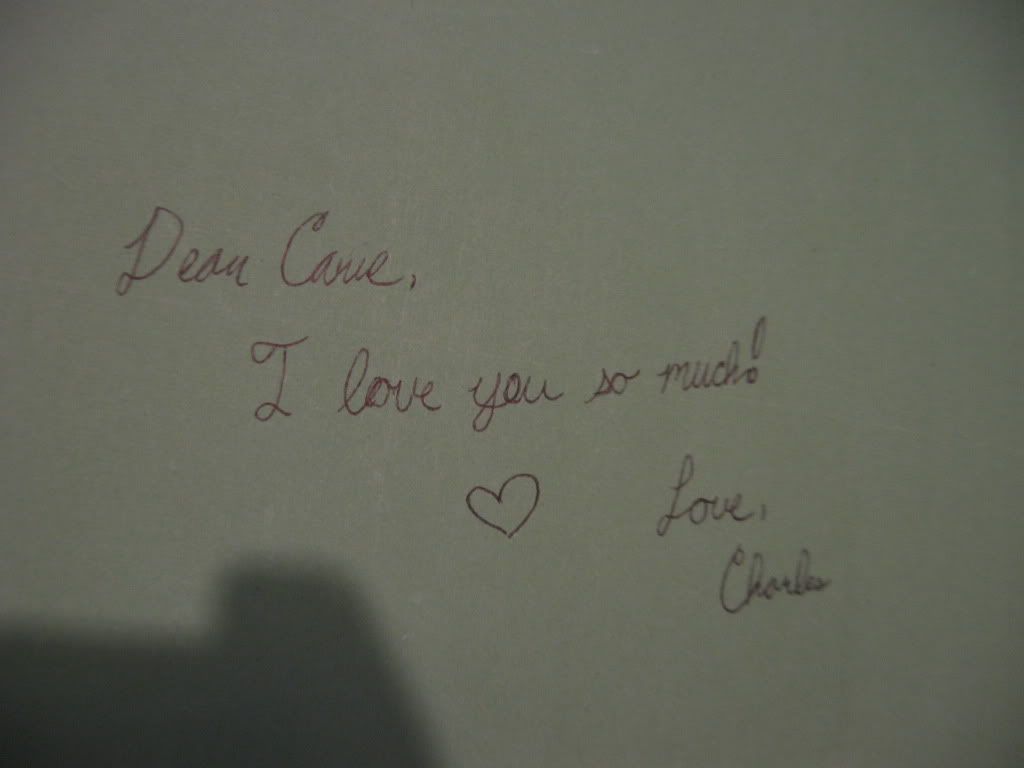 Dear Carrie,
I love you so much!
Love,
Charles